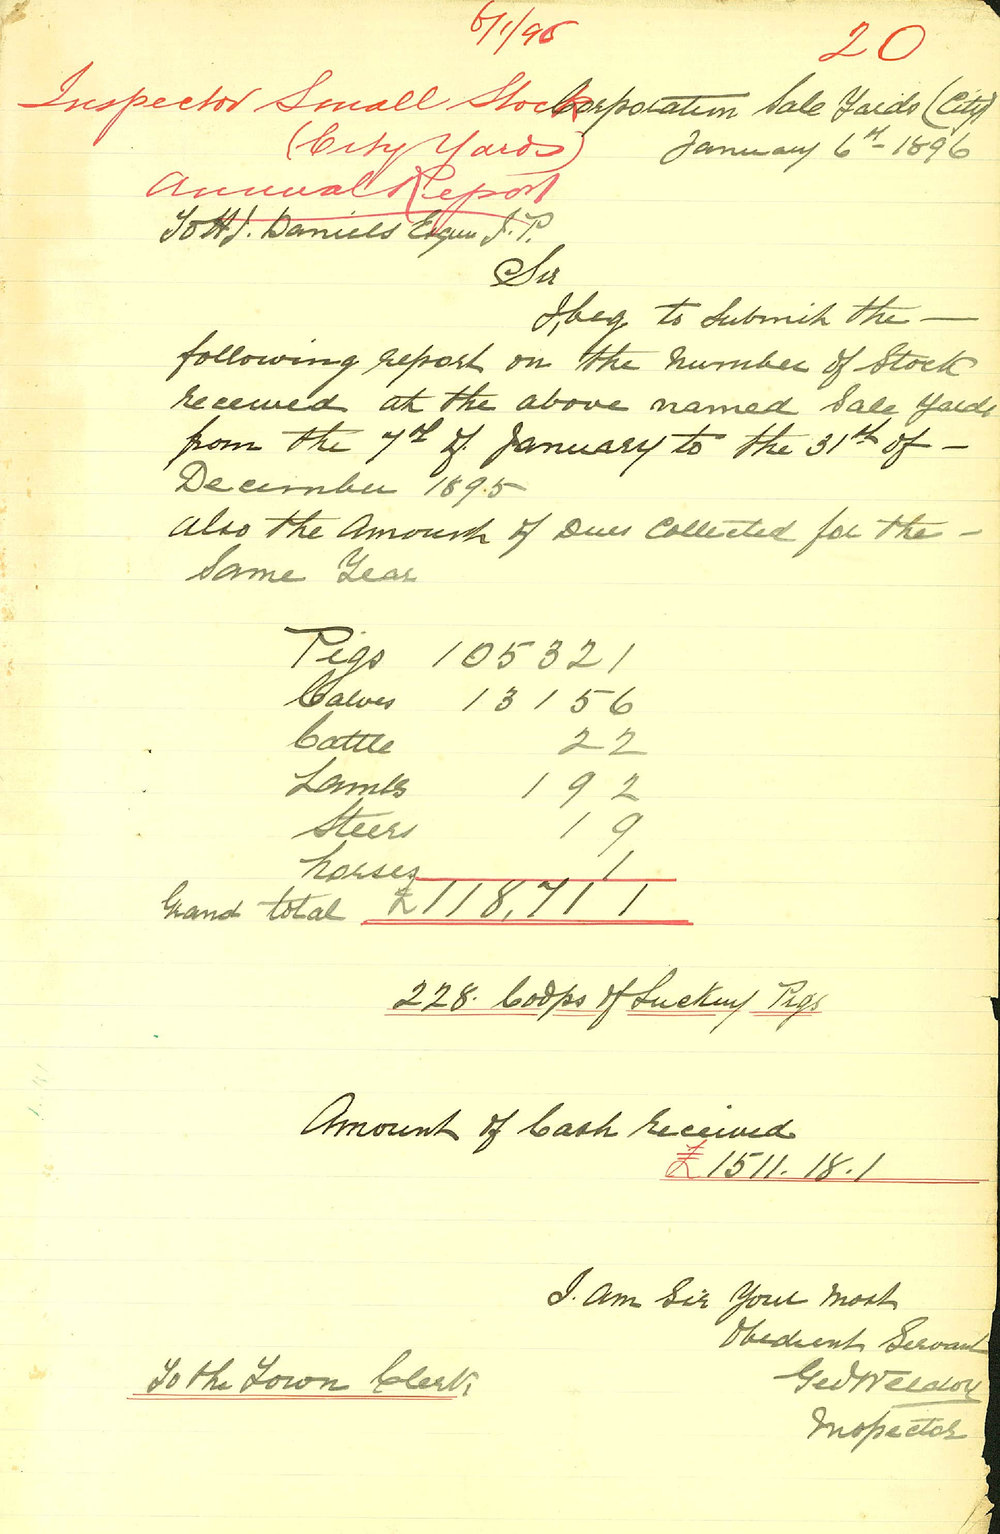 6/1/96
20
Inspector Small Stock
(City Yards)
Annual Report
Corporation Sale Yards (City)
January 6th 1896
To H.J. Daniels Esqur J.P.
Sir
I, beg to submit the —
following report on the number of Stock
received at the above named Sale Yards
from the 7th of January to the 31st of —
December 1895
also the Amount of Dues Collected for the —
Same Year
Pigs 105321
Calves 13156
Cattle 22
Lambs 192
Steers 19
horses 1
Grand total £118,711
228. Coops of Suckey Pigs
Amount of Cash received
£1511.18.1
I. am Sir Your most
Obedient Servant
Geo Weldon
Inspector
To the Town Clerk